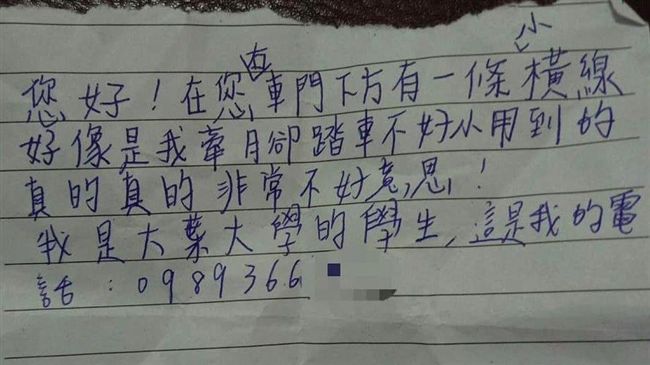 您好！在您車門下方有一條小橫線
好像是我牽腳踏車不好小用到的
真的真的非常不好意思！
我是大葉大學的學生，這是我的電
話：0989366